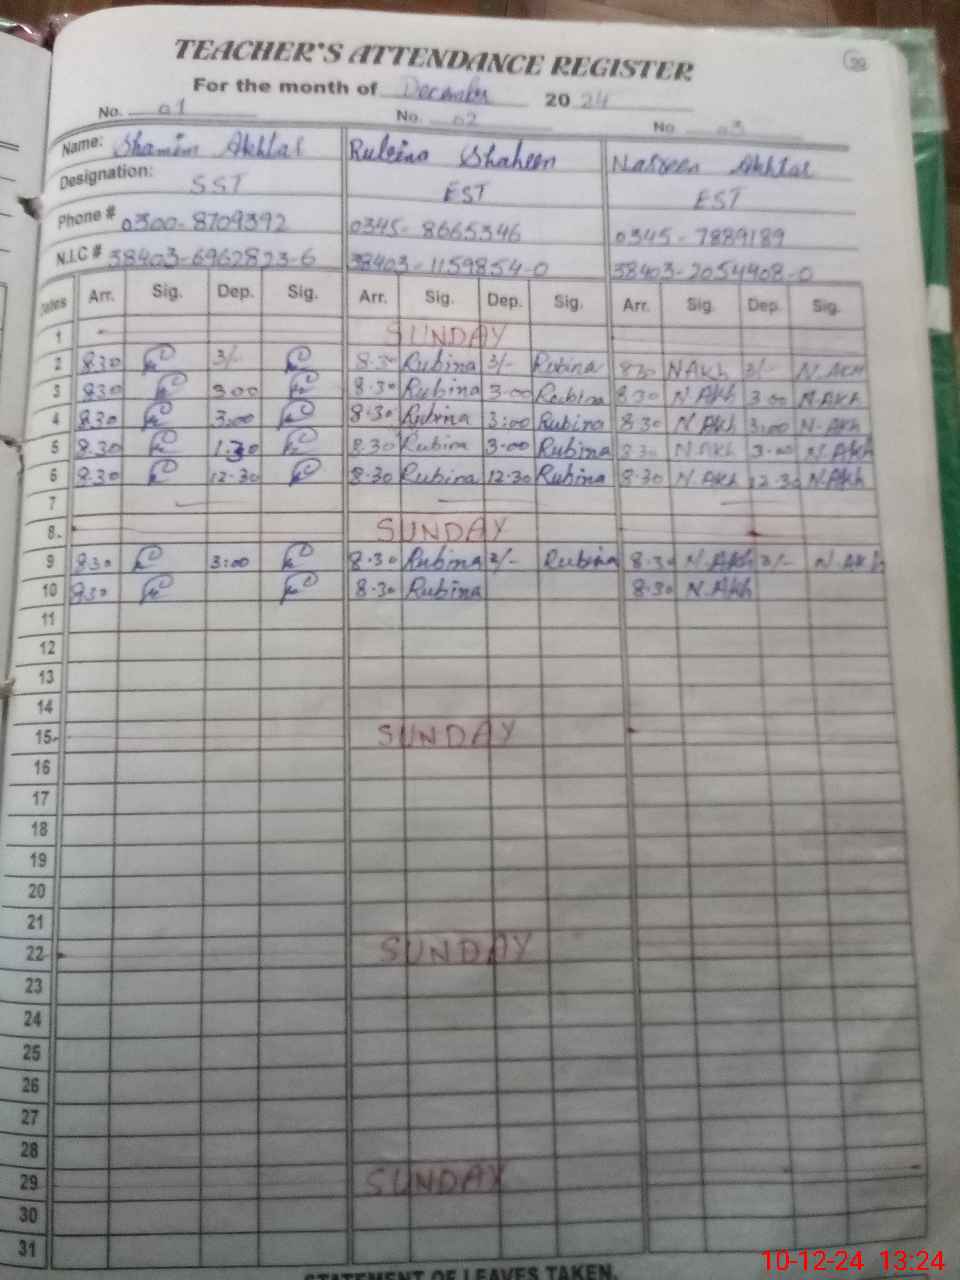 TEACHER'S ATTENDANCE REGISTER
For the month of December 2024
No. 01 No. 02 No 03
Name: Shamim Akhtar Rubina Shaheen Nasreen Akhtar
Designation: SST EST EST
Phone # 0300-8709392 0345-8665346 0345-7889189
N.I.C # 38403-6962823-6 38403-1159854-0 38403-2054408-0
Dates Arr. Sig. Dep. Sig. Arr. Sig. Dep. Sig. Arr. Sig. Dep. Sig.
1 SUNDAY
2 8.30 3/- 8.30 Rubina 3/- Rubina 8.30 N.Akh 3/- N.Akh
3 8.30 3.00 8.30 Rubina 3.00 Rubina 8.30 N.Akh 3.00 N.Akh
4 8.30 3:00 8.30 Rubina 3:00 Rubina 8.30 N.Akh 3:00 N.Akh
5 8.30 1.30 8.30 Rubina 3.00 Rubina 8.30 N.Akh 3.00 N.Akh
6 8.30 12.30 8.30 Rubina 12.30 Rubina 8.30 N.Akh 12.30 N.Akh
7
8 SUNDAY
9 8.30 3:00 8.30 Rubina 3/- Rubina 8.30 N.Akh 3/- N.Akh
10 8.30 8.30 Rubina 8.30 N.Akh
11
12
13
14
15 SUNDAY
16
17
18
19
20
21
22 SUNDAY
23
24
25
26
27
28
29 SUNDAY
30
31
STATEMENT OF LEAVES TAKEN.
10-12-24 13:24